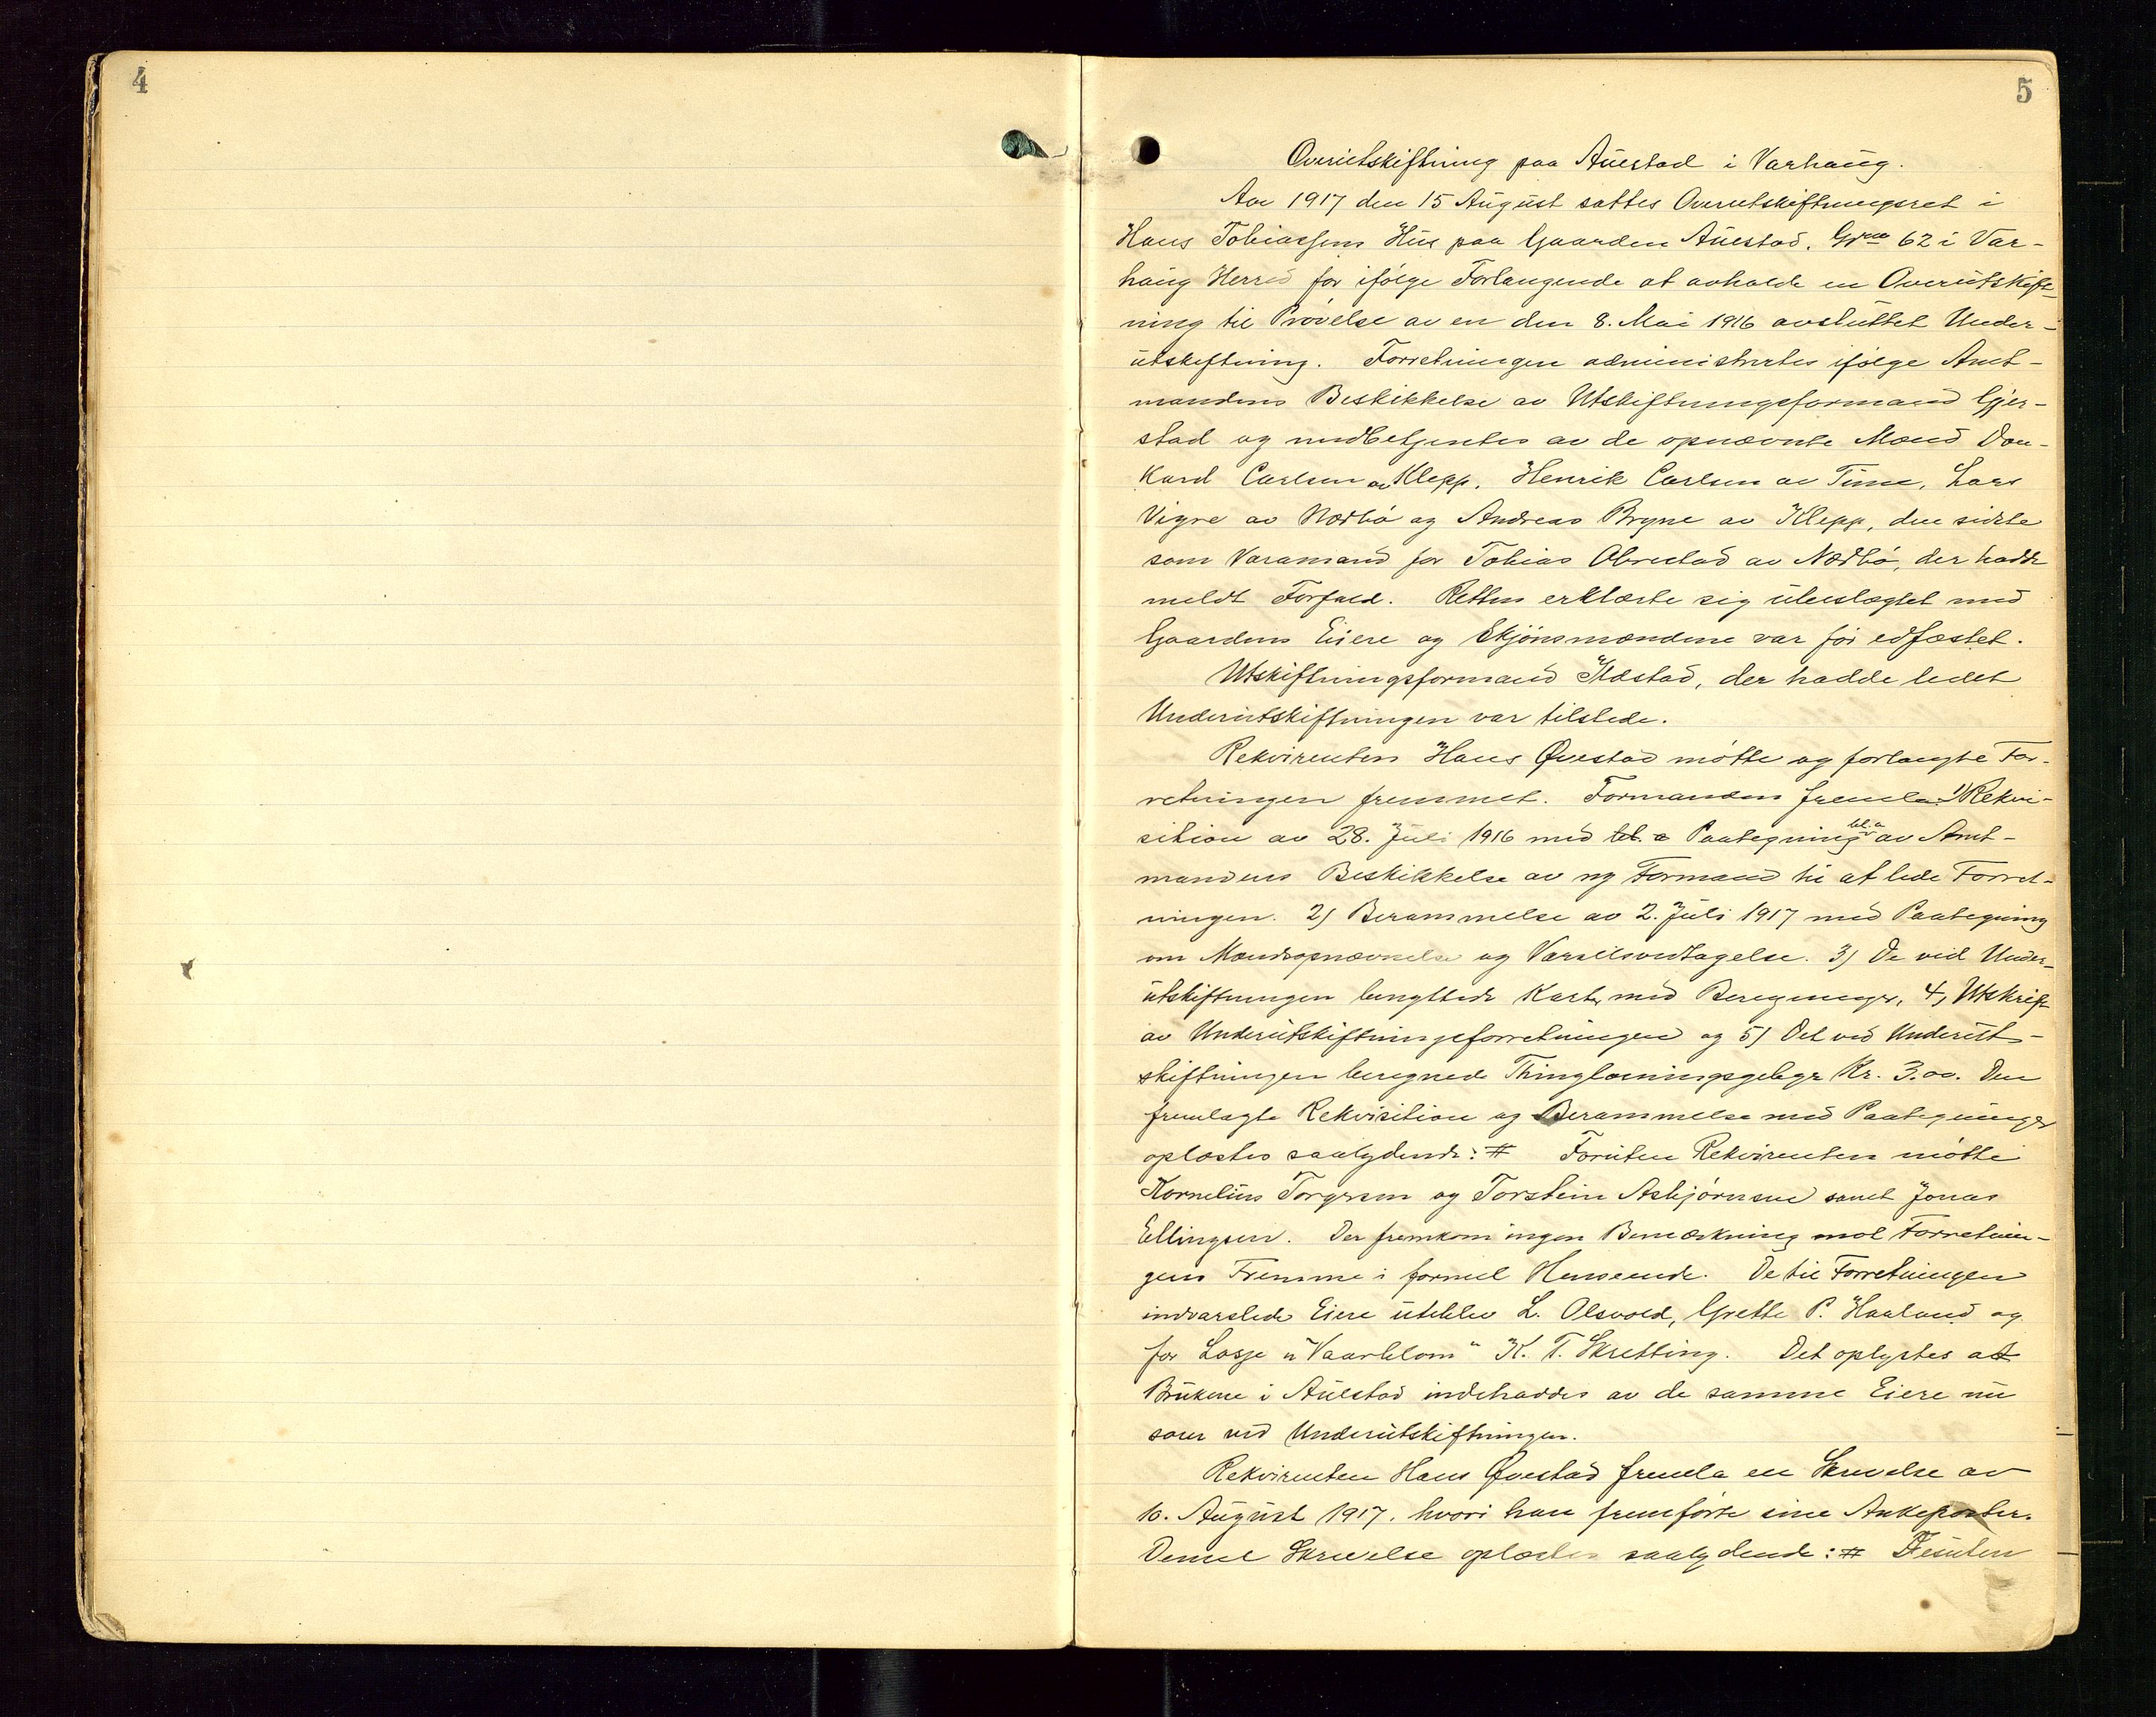 4
5
Overutskiftning paa Auestad i Varhaug.
Aar 1917 den 15 August sattes Overutskiftningsret i
Hans Tobiassens Hus paa Gaarden Auestad, Gr no 62 i Var-
haug Herred for ifølge Forlangende at avholde en Overutskift-
ning til Prøvelse av en den 8. Mai 1916 avsluttet Under-
utskiftning. Forretningen administrertes ifølge Amt-
mandens Beskikkelse av Utskiftningsformand Gjer-
stad og medbetjentes av de opnævnte Mænd Dan-
kard Carlsen av Klepp, Henrik Carlsen av Time, Lars
Vigre av Nærbø og Andreas Bryne av Klepp, den sidste
som Varamand for Tobias Obrestad av Nærbø, der hadde
meldt Forfald. Retten erklærte sig ubeslægtet med
Gaardens Eiere og Skjønsmændene var før edfæstet.
Utskiftningsformand Ældstad, der hadde ledet
Underutskiftningen var tilstede.
Rekvirenten Hans Øvestad møtte og forlangte For-
retningen fremmet. Formanden fremla 1) Rekvi-
sition av 28. Juli 1916 med bl. a Paategning bl. a av Amt-
mandens Beskikkelse av ny Formand til at lede Forret-
ningen. 2) Berammelse av 2. Juli 1917 med Paategning
om Mandsopnævnelse og Varselsvedtagelse. 3) De ved Under-
utskiftningen benyttede Kart med Beregninger, 4) Utskrift
av Underutskiftningsforretningen og 5) Det ved Underut-
skiftningen beregnede Thinglæsningsgebyr Kr. 3.00. Den
fremlagte Rekvisition og Berammelse med Paategninger
oplæstes saalydende: # Foruten Rekvirenten møtte
Kornelius Torgersen og Torstein Asbjørnsen samt Jonas
Ellingsen. Der fremkom ingen Bemærkning mot Forretnin-
gens Fremme i formel Henseende. De til Forretningen
indvarslede Eiere uteblev L. Olsvold, Grette P. Haaland og
for Losje "Vaarblom" K. T. Skretting. Det oplystes at
Brukene i Auestad indehaddes av de samme Eiere nu
som ved Underutskiftningen.
Rekvirenten Hans Øvestad fremla en Skrivelse av
10. August 1917, hvori han fremførte sine Ankeposter.
Denne Skrivelse oplæstes saalydende: # Desuten